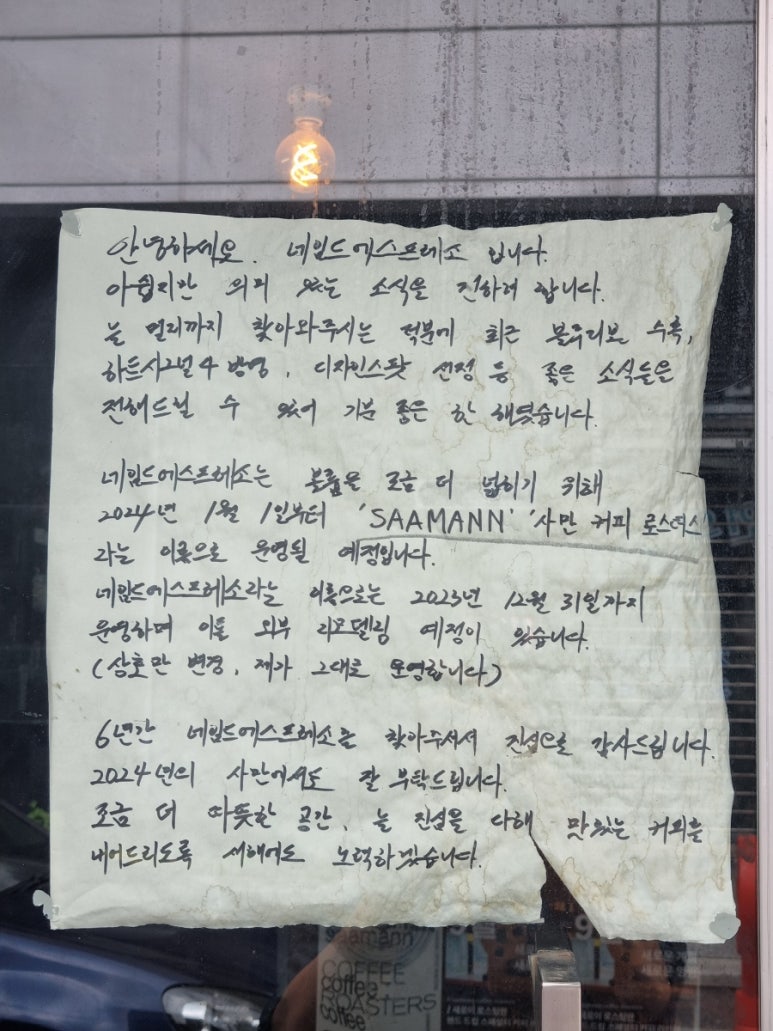 안녕하세요. 네임드에스프레소 입니다.
아쉽지만 의미 있는 소식을 전하려 합니다.
늘 멀리까지 찾아와주시는 덕분에 최근 블루리본 수록,
하트시그널4 방영, 디자인스팟 선정 등 좋은 소식들을
전해드릴 수 있어 기분 좋은 한 해였습니다.
네임드에스프레소는 볼륨을 조금 더 넓히기 위해
2024년 1월 1일부터 'SAAMANN' '사만 커피 로스터스'
라는 이름으로 운영될 예정입니다.
네임드에스프레소라는 이름으로는 2023년 12월 31일까지
운영하며 이틀 외부 리모델링 예정이 있습니다.
(상호만 변경, 제가 그대로 운영합니다)
6년간 네임드에스프레소를 찾아주셔서 진심으로 감사드립니다.
2024년의 사만에서도 잘 부탁드립니다.
조금 더 따뜻한 공간, 늘 진심을 다해 맛있는 커피를
내어드리도록 새해에도 노력하겠습니다.
saamann
COFFEE
coffee
ROASTERS
coffee